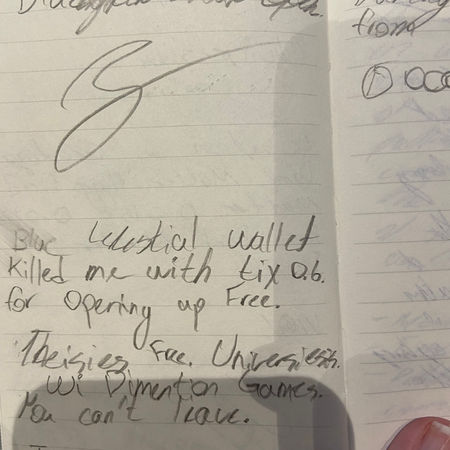 from
Blue Celestial wallet
Killed me with tix 0.6.
for Opening up Free.
Theisies Free. Universiesis.
Wi Dimention Games.
You can't leave.